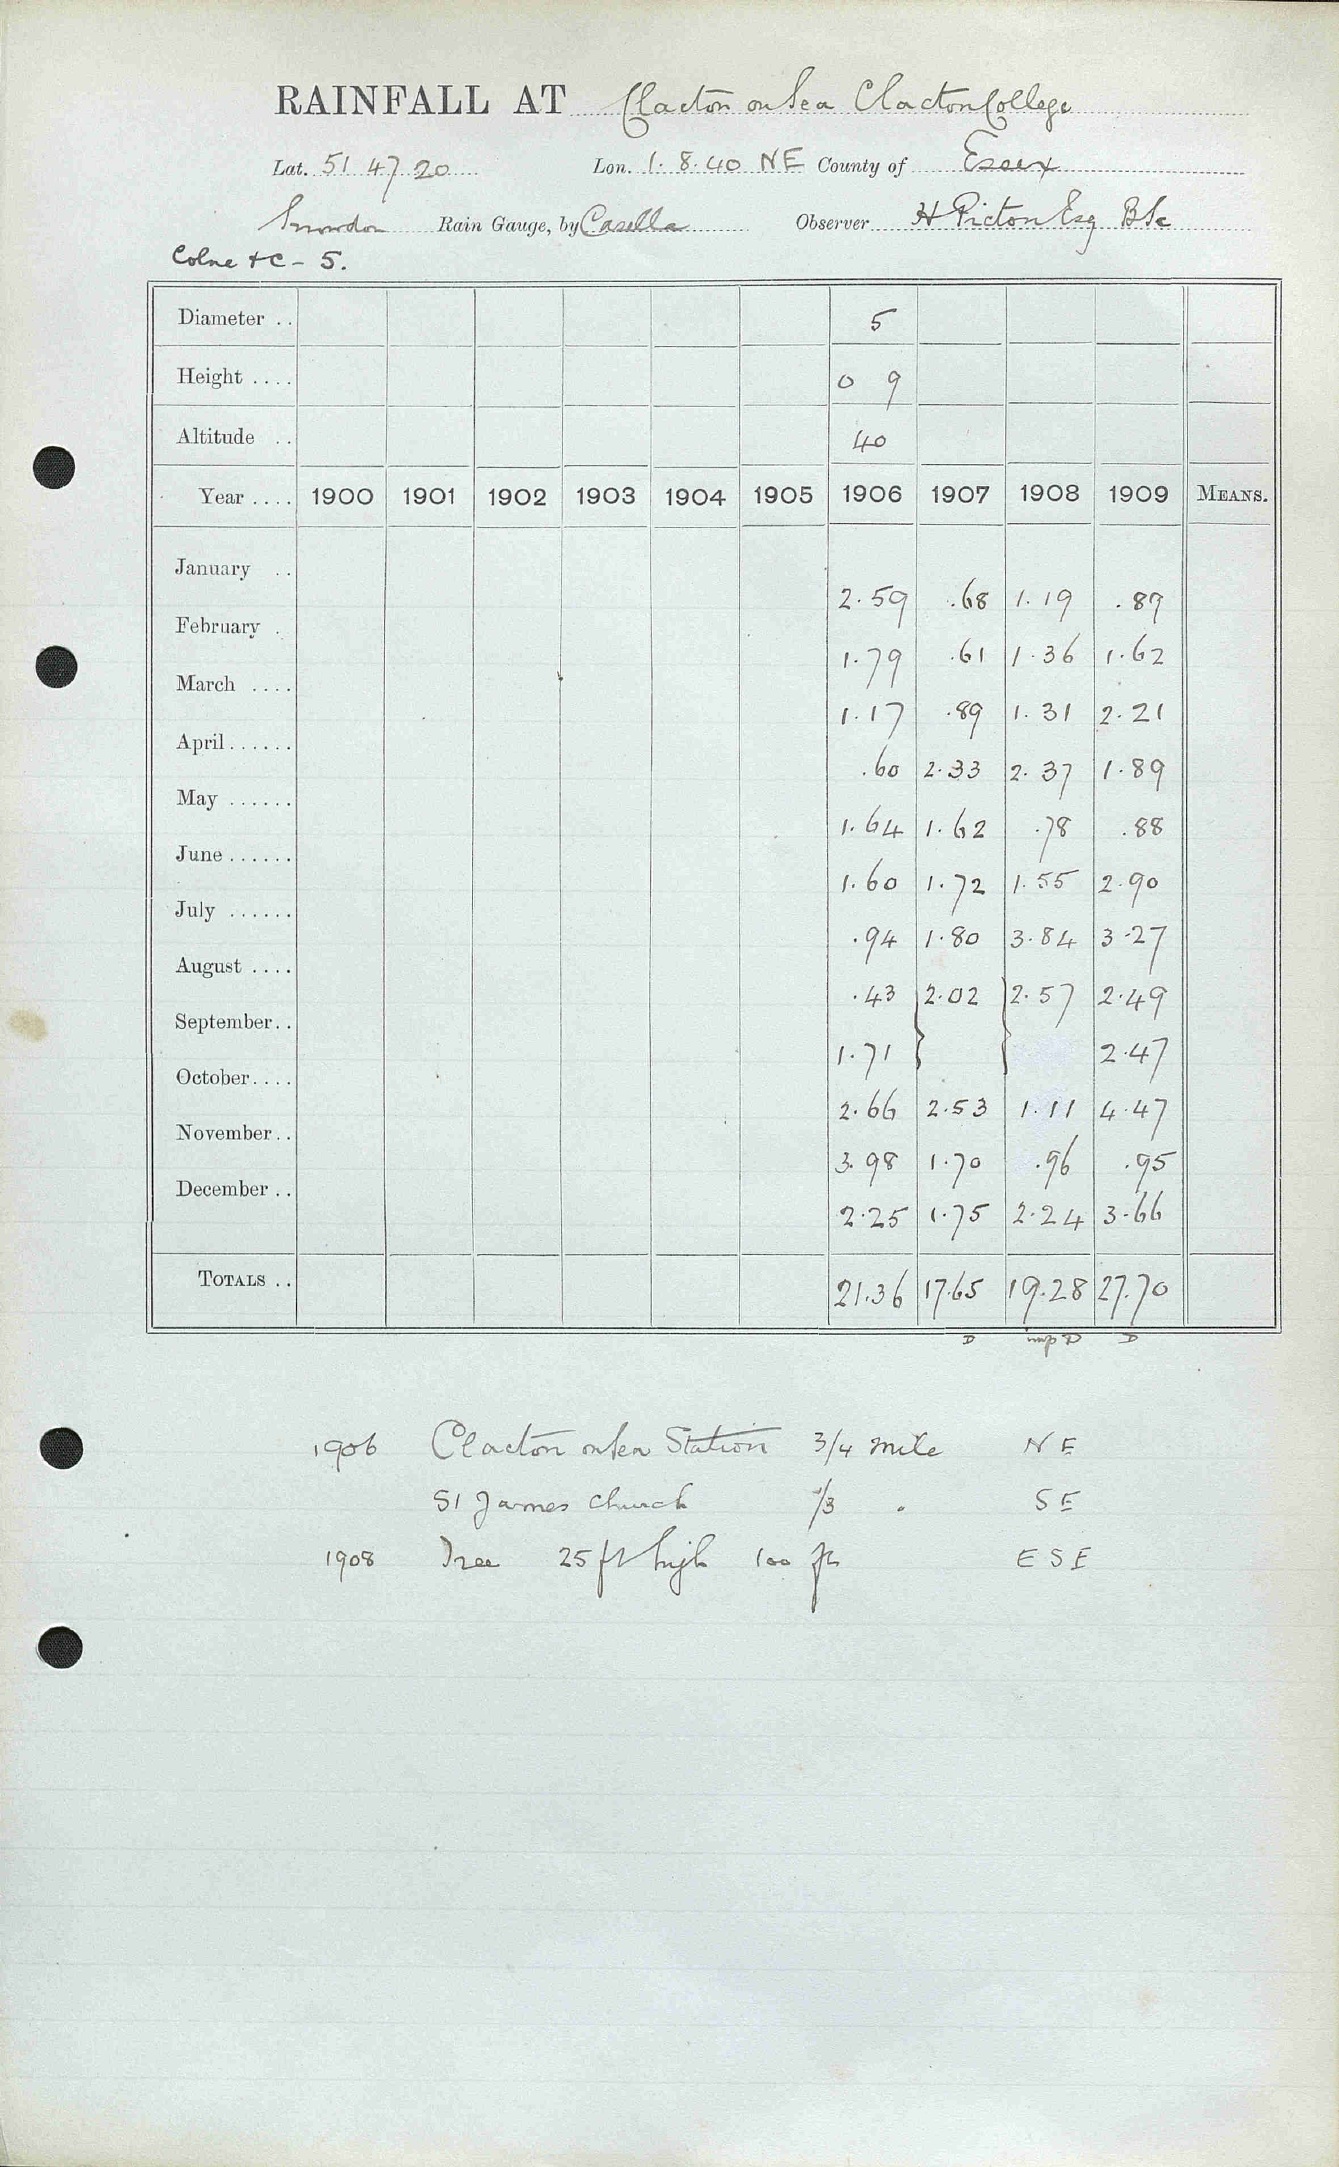 RAINFALL AT Clacton on Sea Clacton College
Lat. 51 47 20 Lon. 1. 8. 40 NE County of Essex
Snowdon Rain Gauge, by Casella Observer H Picton Esq BSc
Colne &C - 5.
Diameter .. 5
Height .... 0 9
Altitude .. 40
Year .... 1900 1901 1902 1903 1904 1905 1906 1907 1908 1909 MEANS.
January .. 2.59 .68 1.19 .89
February . 1.79 .61 1.36 1.62
March .... 1.17 .89 1.31 2.21
April ...... .60 2.33 2.37 1.89
May ...... 1.64 1.62 .78 .88
June ...... 1.60 1.72 1.55 2.90
July ...... .94 1.80 3.84 3.27
August .... .43 } 2.02 } 2.57 2.49
September .. 1.71 2.47
October .... 2.66 2.53 1.11 4.47
November .. 3.98 1.70 .96 .95
December .. 2.25 1.75 2.24 3.66
TOTALS .. 21.36 17.65 19.28 27.70
D imp D D
1906 Clacton on Sea Station 3/4 mile NE
St James Church 1/3 . SE
1908 Tree 25 ft high 100 ft ESE